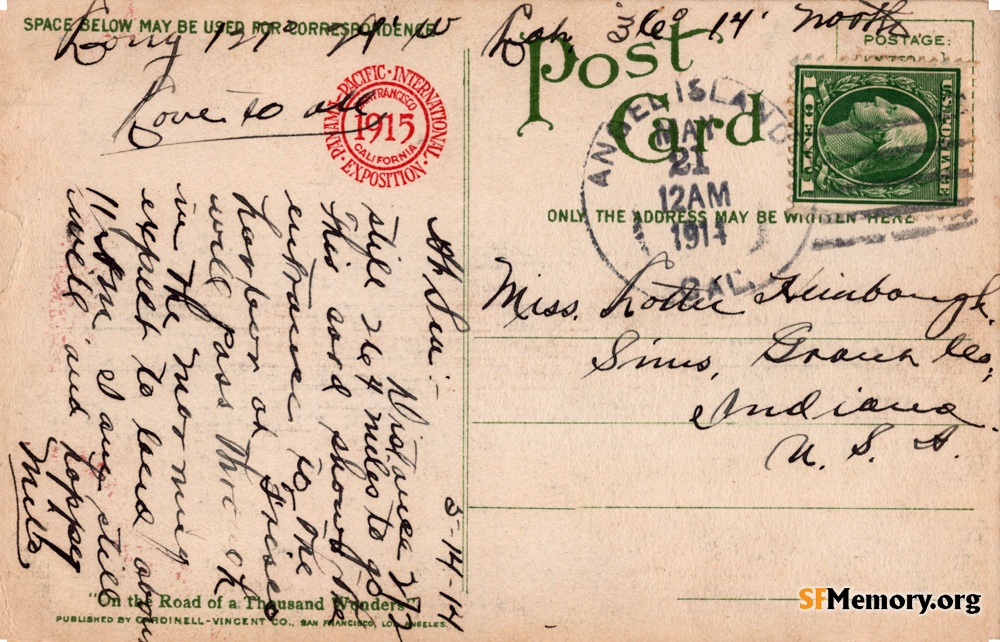 Long 127° 24' W
Lat. 36° 14' North
SPACE BELOW MAY BE USED FOR CORRESPONDENCE
Love to all
PANAMA · PACIFIC · INTERNATIONAL · EXPOSITION
SAN FRANCISCO
1915
CALIFORNIA
Post
Card
POSTAGE:
ONLY THE ADDRESS MAY BE WRITTEN HERE
ANGEL ISLAND
MAY
21
12AM
1914
CAL.
U.S. POSTAGE
1 CENT 1
Miss. Lottie Heinbaugh.
Sims, Grant Co;
Indiana.
U. S. A.
3-14-14
At Sea:-
Distance
still 264 miles to go
This card shows the
entrance to the
harbor of Frisco
will pass through
in the morning
expect to land about
11 A.M. I am still
well and happy
Mills
"On the Road of a Thousand Wonders"
PUBLISHED BY CARDINELL-VINCENT CO., SAN FRANCISCO, LOS ANGELES.
SFMemory.org